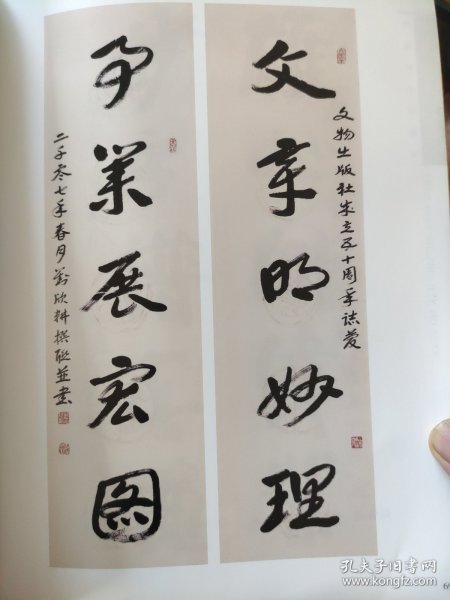 文章明妙理
文物出版社成立五十周年誌慶
事業展宏圖
二千零七年春月劉欣耕撰聯並書
孔夫子旧书网
www.kongfz.com